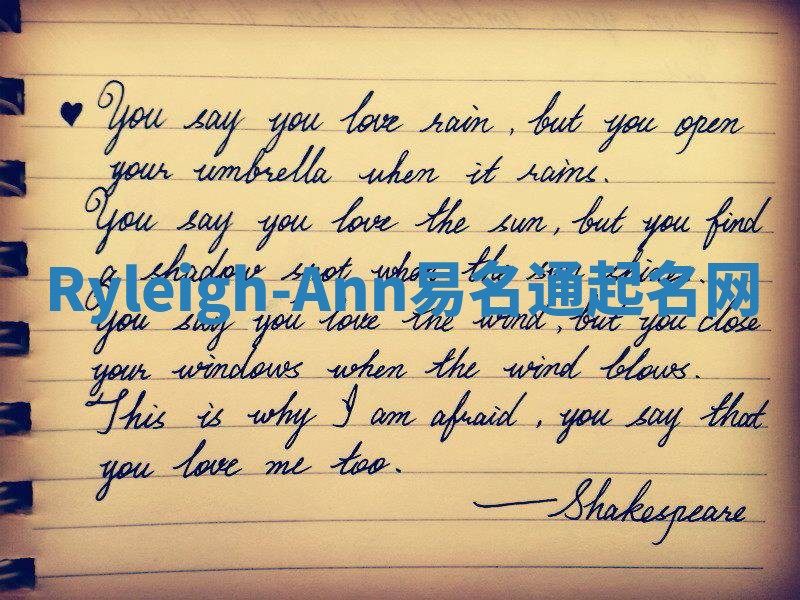 ♥ You say you love rain, but you open
your umbrella when it rains.
You say you love the sun, but you find
a shadow spot when the sun shines.
Ryleigh-Ann易名通起名网
You say you love the wind, but you close
your windows when the wind blows.
This is why I am afraid, you say that
you love me too.
—Shakespeare